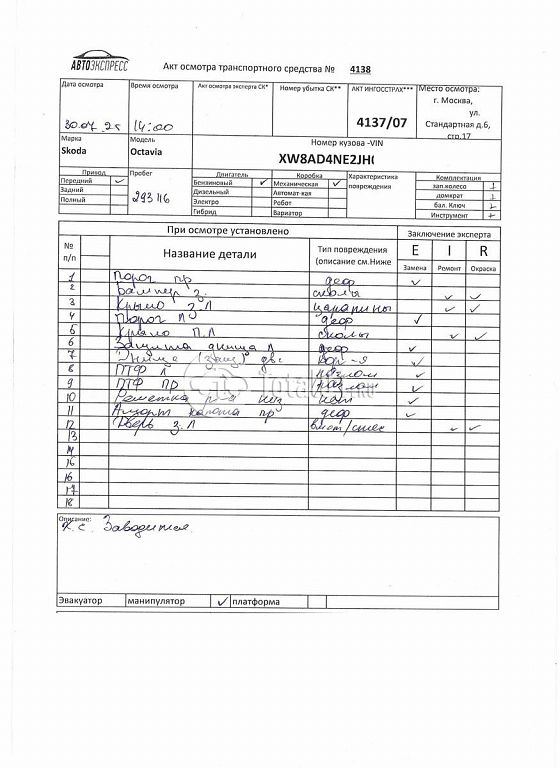 АВТОЭКСПРЕСС
Акт осмотра транспортного средства № 4138
Дата осмотра Время осмотра Акт осмотра эксперта СК* Номер убытка СК** АКТ ИНГОССТРАХ*** Место осмотра:
г. Москва,
ул.
Стандартная д.6,
стр.17
14:00 4137/07
Марка Модель Номер кузова -VIN
Skoda Octavia XW8AD4NE2JH(
Привод Пробег Двигатель Коробка Характеристика повреждения Комплектация
Передний Бензиновый Механическая зап колесо
Задний 293 116 Дизельный Автомат-кая домкрат
Полный Электро Робот бал. Ключ
Гибрид Вариатор Инструмент
При осмотре установлено Заключение эксперта
№ п/п Название детали Тип повреждения (описание см.Ниже E I R
Замена Ремонт Окраска
1 Порог пр деф
2 Бампер з. сколы
3 Крыло з.Л царапины
4 Порог Л деф
5 Крыло П.Л сколы
6 Защита днища Л деф
7 Днище
8 ПТФ Л разлом
9 ПТФ ПР разлом
10 Решетка низ
11 Аморт капота пр деф
12 Дверь з.Л
13
14
15
16
17
18
Описание:
Х.С. Заводится.
Эвакуатор манипулятор платформа